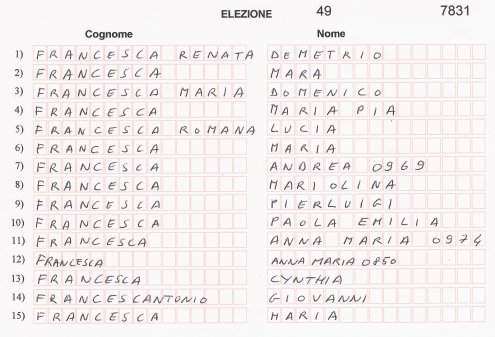 ELEZIONE 49 7831
Cognome Nome
1) FRANCESCA RENATA DEMETRIO
2) FRANCESCA MARA
3) FRANCESCA MARIA DOMENICO
4) FRANCESCA MARIA PIA
5) FRANCESCA ROMANA LUCIA
6) FRANCESCA MARIA
7) FRANCESCA ANDREA 0969
8) FRANCESCA MARIOLINA
9) FRANCESCA PIERLUIGI
10) FRANCESCA PAOLA EMILIA
11) FRANCESCA ANNA MARIA 0974
12) FRANCESCA ANNA MARIA 0850
13) FRANCESCA CYNTHIA
14) FRANCESCANTONIO GIOVANNI
15) FRANCESCA MARIA